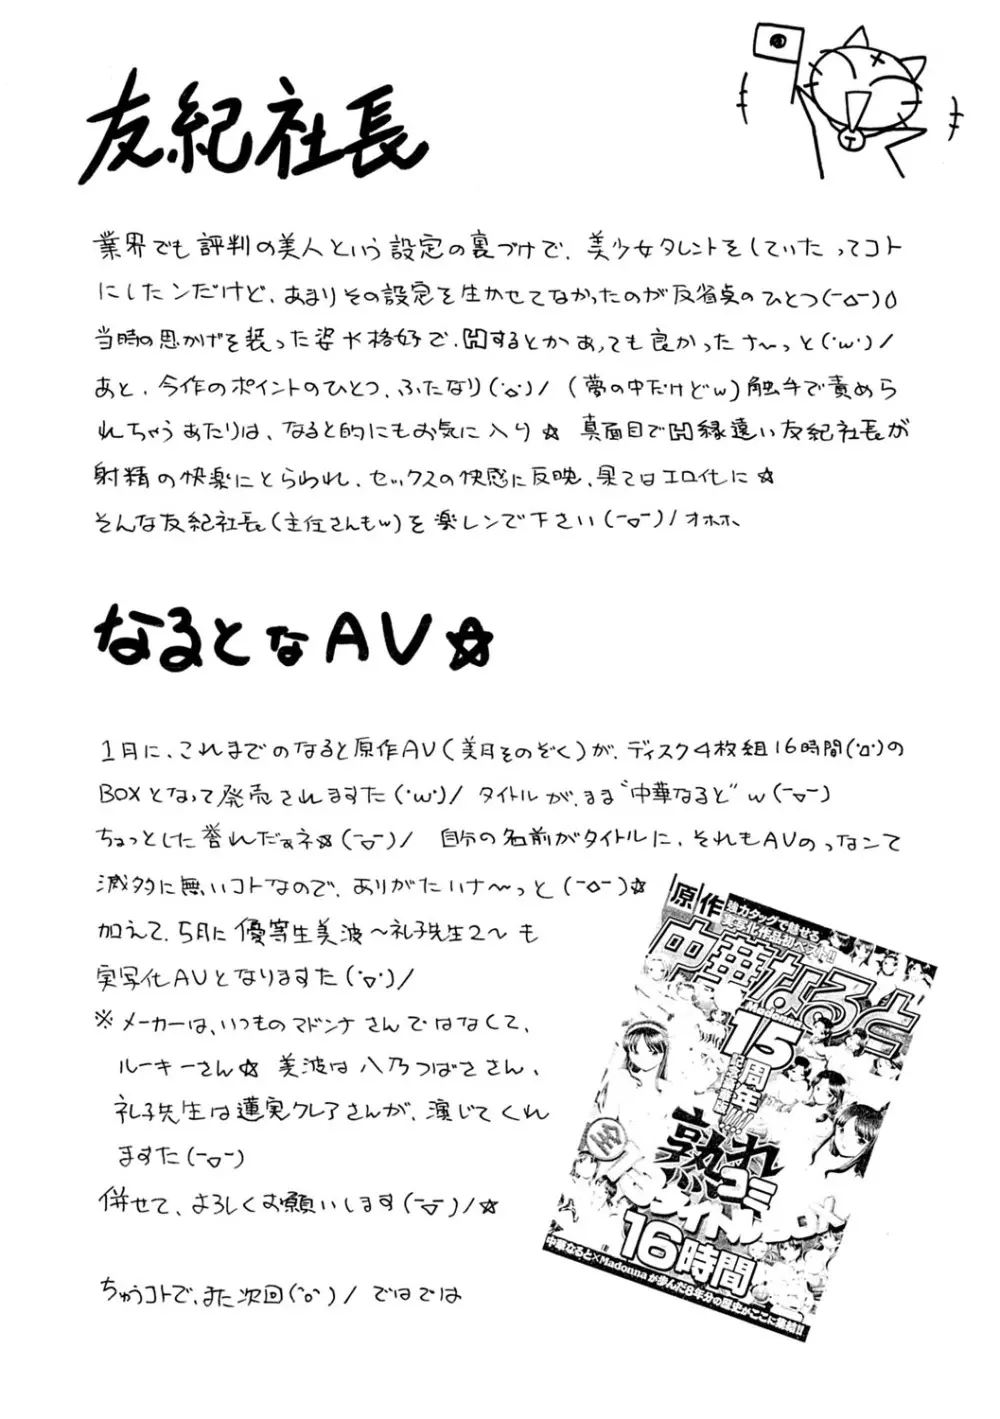 友紀社長
業界でも評判の美人という設定の裏づけで、美少女タレントをしていたってコト
にしたンだけど、あまりその設定を生かせてなかったのが反省点のひとつ(ーoー)
当時の思かげを装った姿や格好で、Hするとかあっても良かったナ〜っと(・w・)/
あと、今作のポイントのひとつ、ふたなり(°o°)/ (夢の中だけどw)触手で責めら
れちゃうあたりは、なると的にもお気に入り☆ 真面目でH縁遠い友紀社長が
射精の快楽にとらわれ、セックスの快感に反映、果てはエロ化に☆
そんな友紀社長(主任さんもw)を楽しンで下さい(ー▽ー)/オホホ、
なるとなAV☆
1月に、これまでのなると原作AV(美月そのぞく)が、ディスク4枚組16時間(°Д°)の
BOXとなって発売されますた(・w・)/ タイトルが、まま“中華なると”w(ー▽ー)
ちょっとした誉れだぁネ☆(ー▽ー)/ 自分の名前がタイトルに、それもAVのっなンて
滅多に無いコトなので、ありがたいナ〜っと(ーoー)☆
加えて、5月に優等生美波〜礼子先生2〜も
実写化AVとなりますた(°▽°)/
※メーカーは、いつものマドンナさんではなくて、
ルーキーさん☆ 美波は八乃つばささん、
礼子先生は蓮実クレアさんが、演じてくれ
ますた(ー▽ー)
併せて、よろしくお願いします(ー▽ー)/☆
ちゅうコトで、また次回(°o°)/ ではでは
原作
強力タッグで魅せる
実写化作品初ベスト!!
中華なると
Madonna
15周年
熟れコミ
全13タイトルBOX
16時間
中華なると×Madonnaが歩んだ8年分の歴史がここに集結!!
T